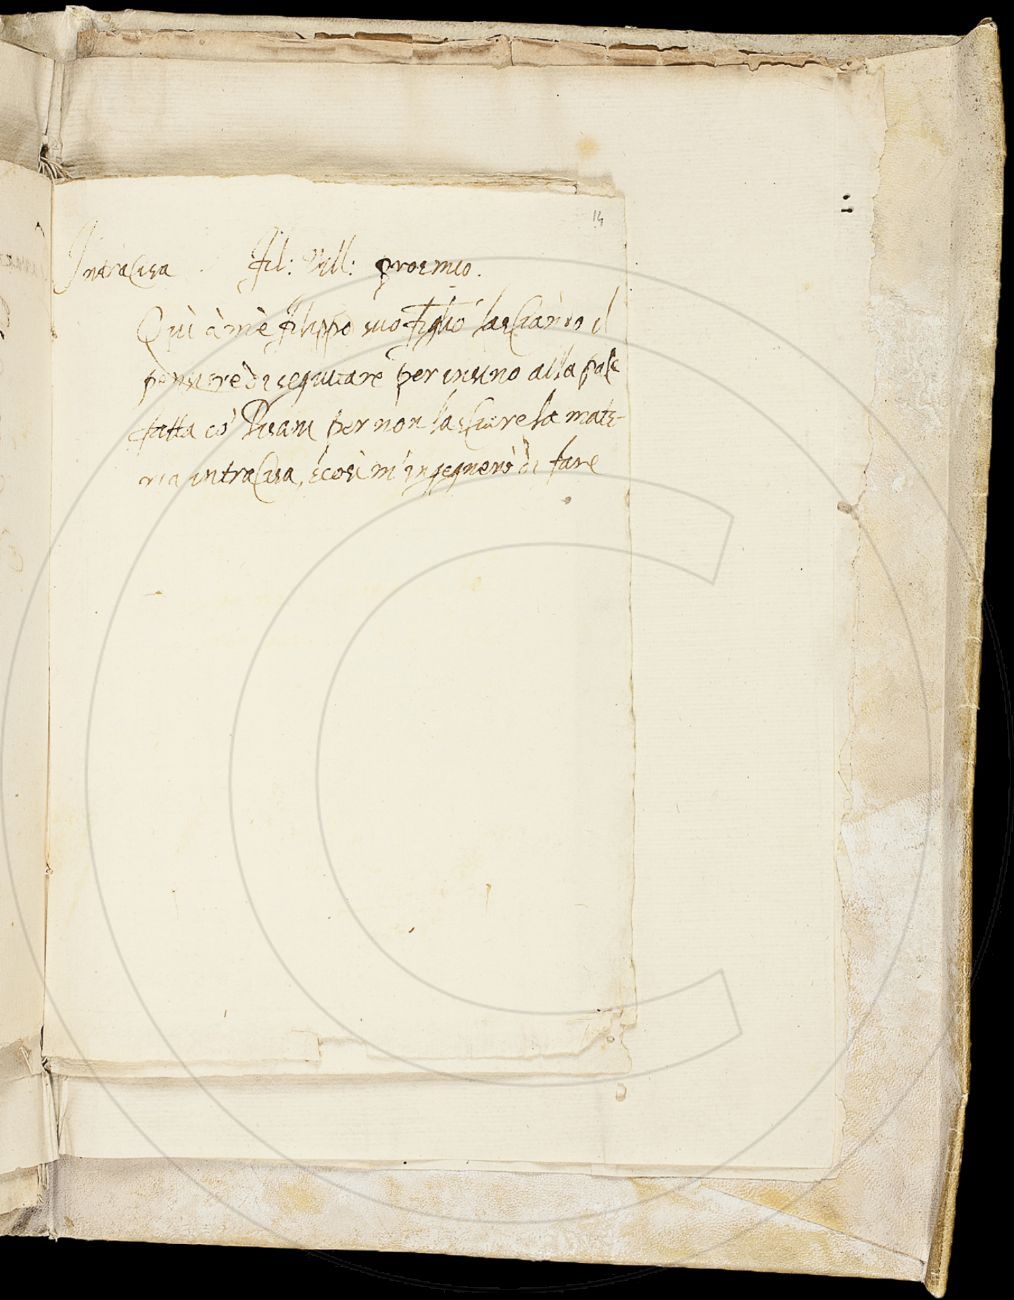 14
Intracisa Fil: Vill: proemio.
Quì à mè filippo suo figlio lasciàrno il
pensiere di seguitare per insino alla pace
fatta co' Pisani per non lasciare la mate-
ria intracisa, é così m'ingegnerò di fare